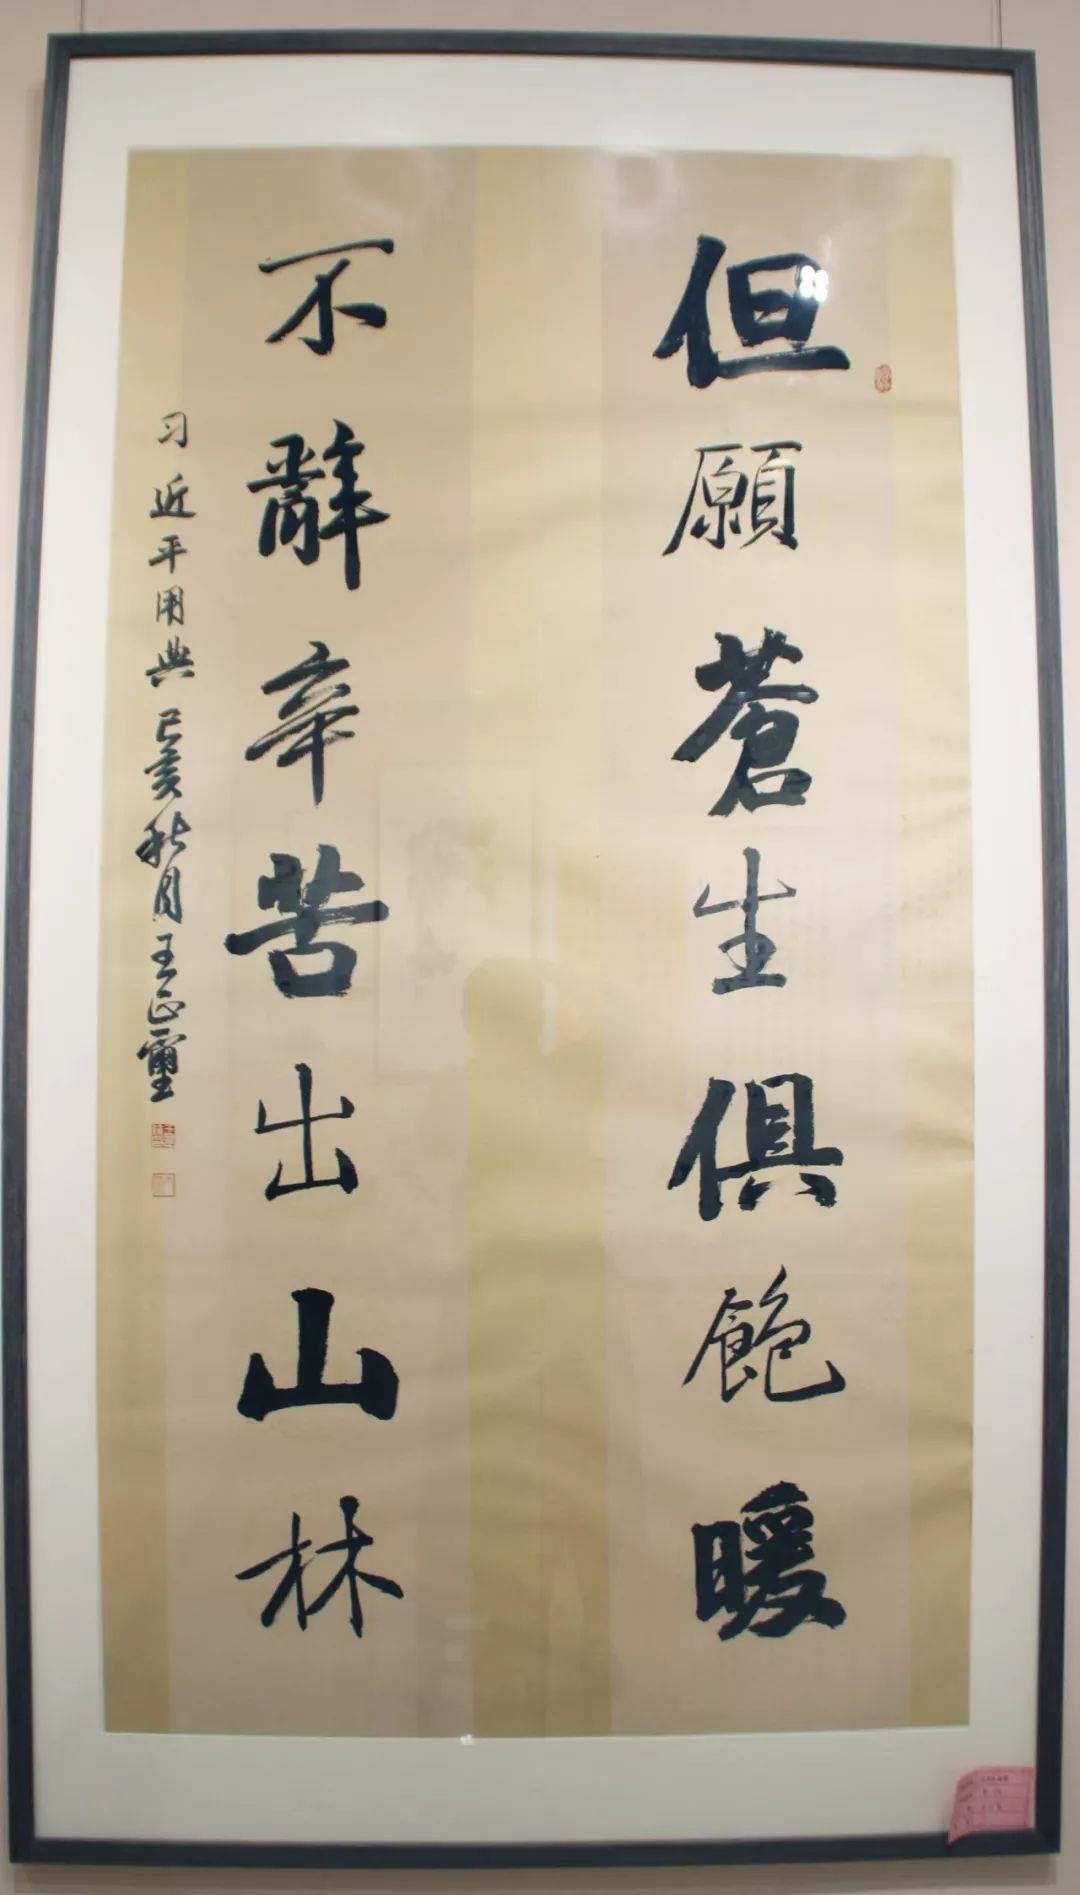 但願蒼生俱飽暖
不辭辛苦出山林
习近平用典 己亥秋月 王正璽